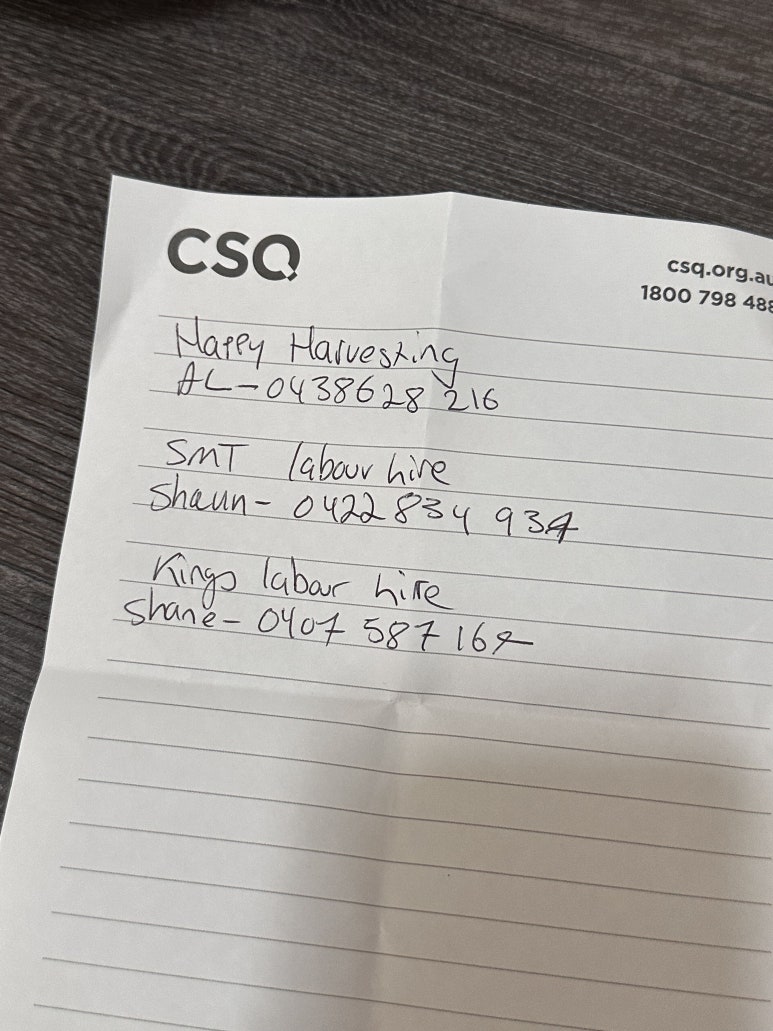 CSQ
csq.org.au
1800 798 488
Happy Harvesting
AL-0438628 216
SMT labour hire
Shaun- 0422 834 934
Kings labour hire
Shane- 0407 587 164